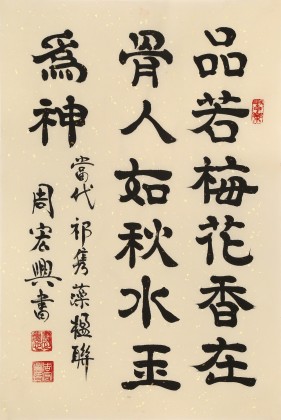 品若梅花香在
骨人如秋水玉
為神
當代祁雋藻楹聯
周宏興書